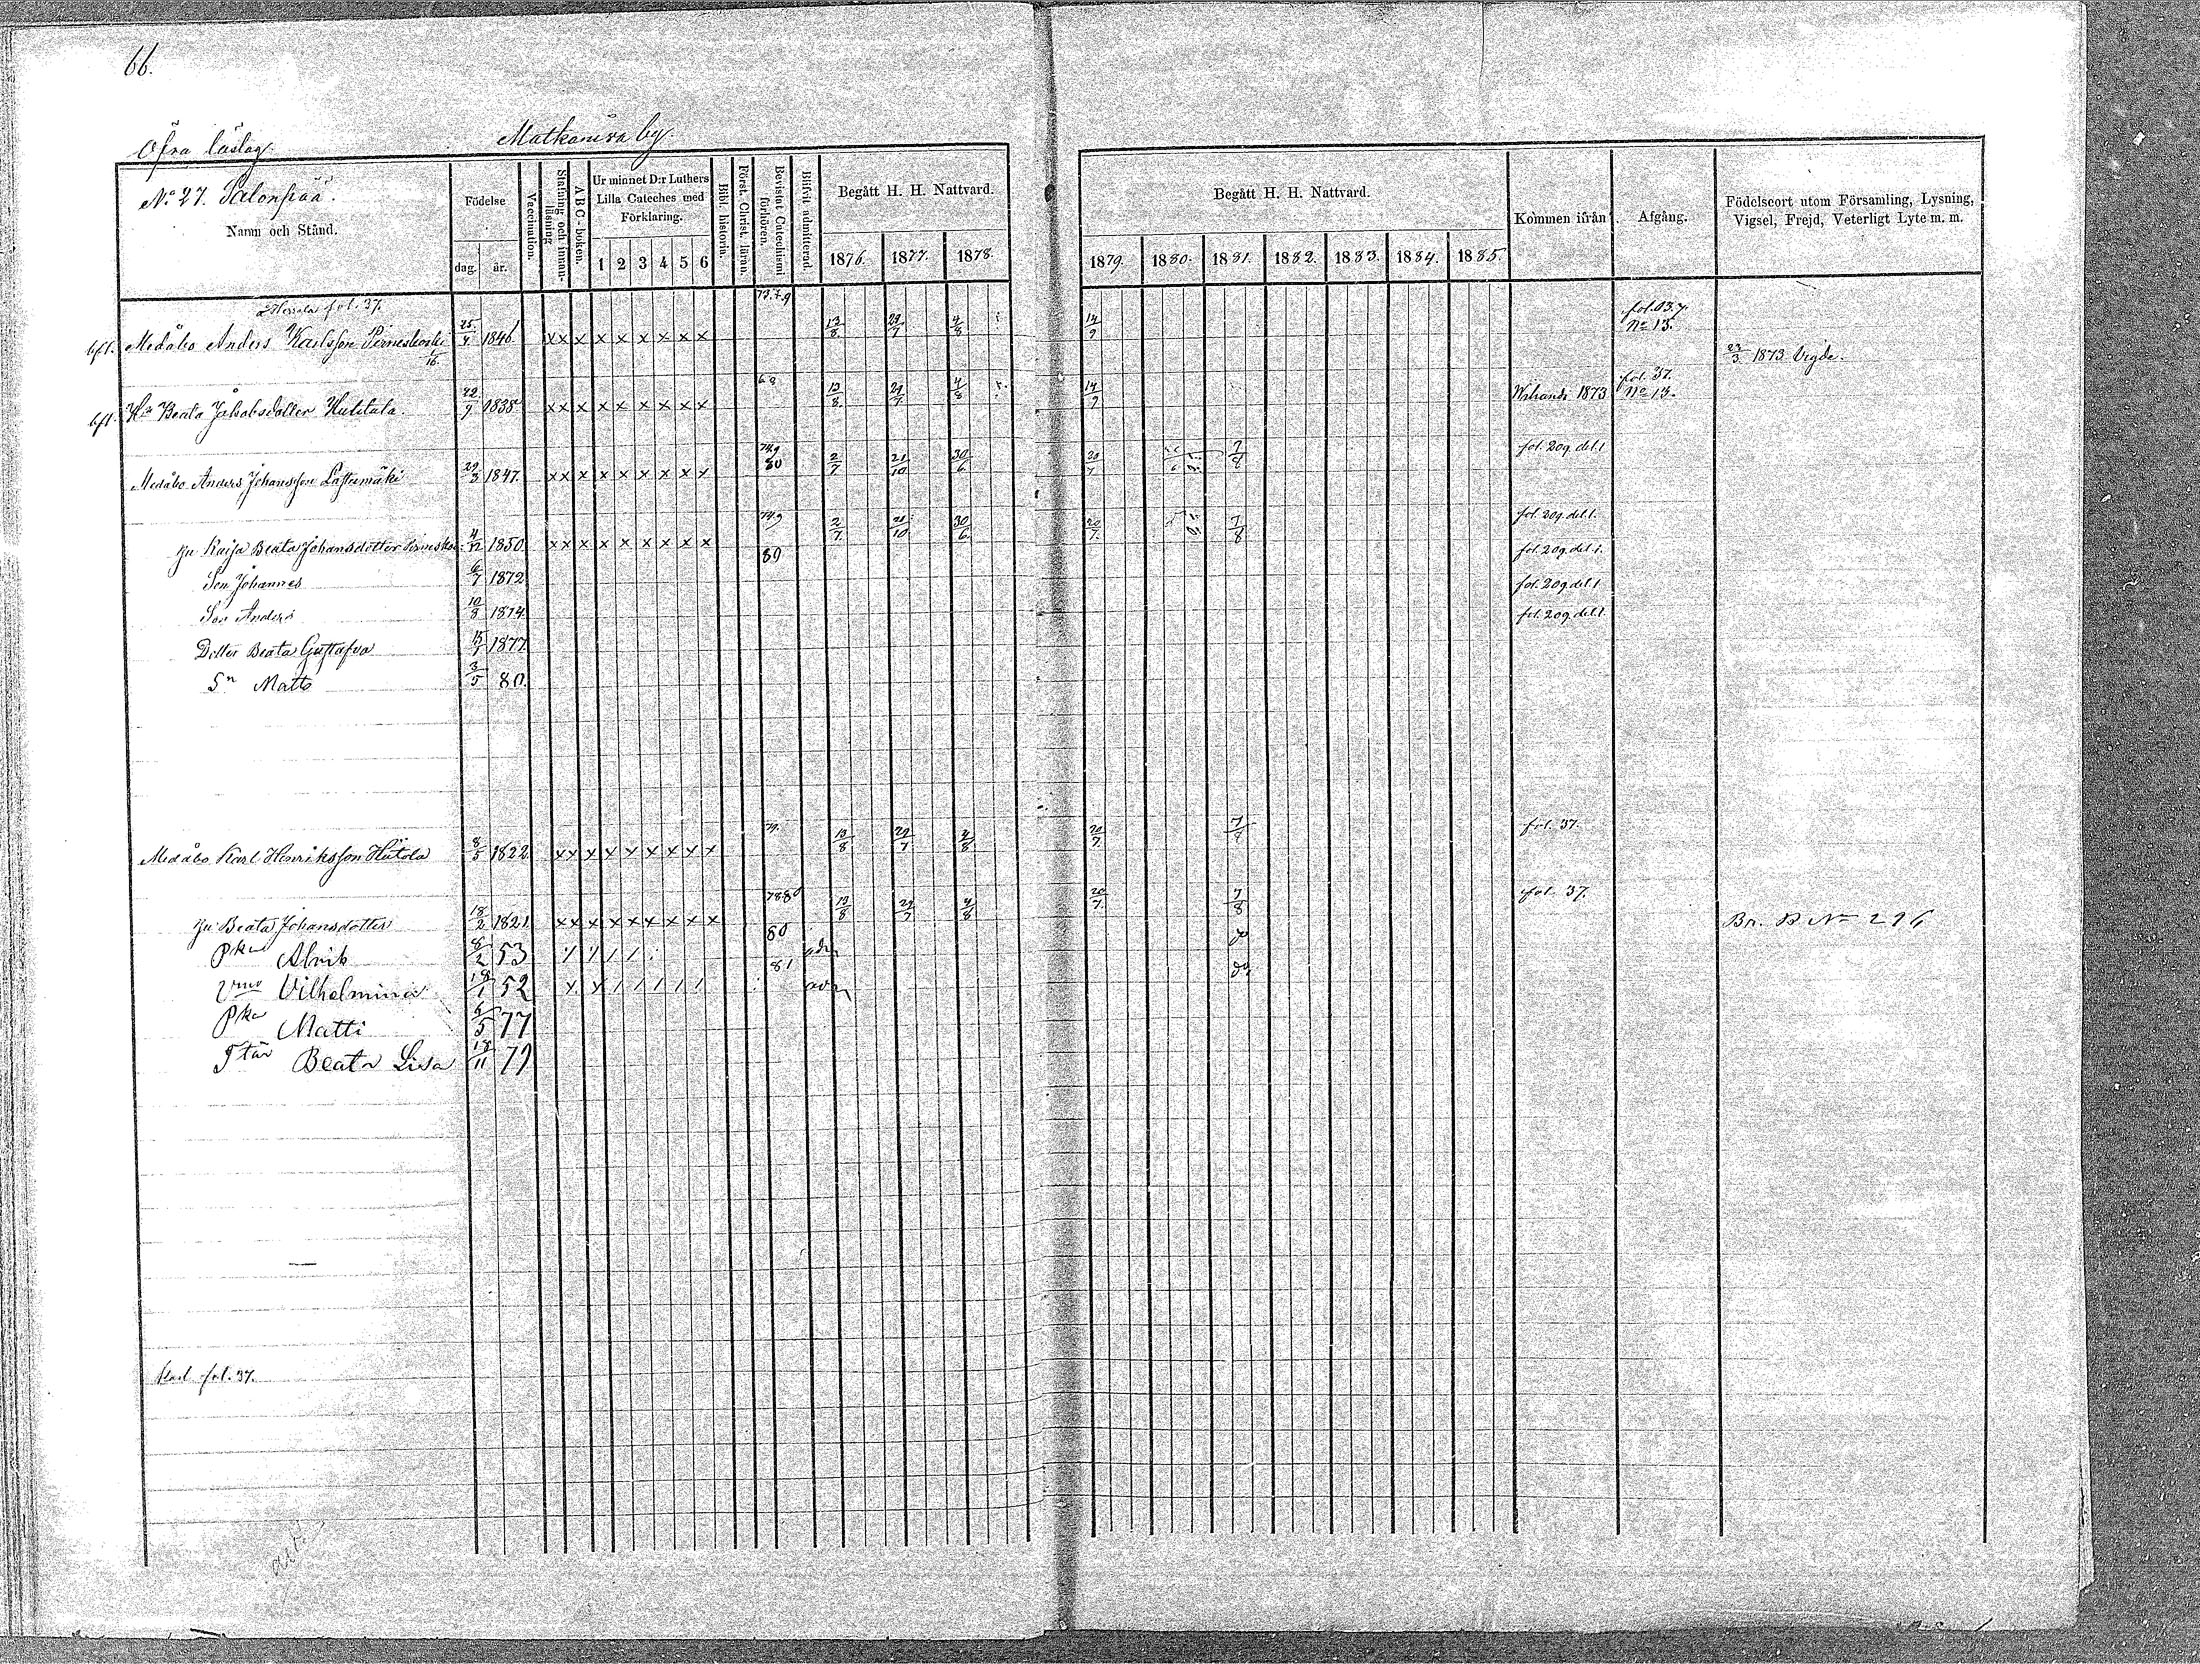 66.
Öfra läslag.
Matkaniva by.
No 27. Salonpää.
Namn och Stånd.
Födelse
dag.
år.
Vaccination.
Stafning och innan-läsning
A B C-boken.
Ur minnet D:r Luthers
Lilla Cateches med
Förklaring.
1 2 3 4 5 6
Bibl. historia.
Först. Christ. läran.
Bevistat Catechismi förhören.
Blifvit admitterad.
Begått H. H. Nattvard.
1876. 1877. 1878.
Begått H. H. Nattvard.
1879. 1880. 1881. 1882. 1883. 1884. 1885.
Kommen ifrån
Afgång.
Födelseort utom Församling, Lysning,
Vigsel, Frejd, Veterligt Lyte m. m.
fol. 37.
Medåbo Anders Karlsson 25/4 1846 x x x x x x x x x 13/8 29/7 4/8 14/9 No 13.
23/3 1873 Vigde.
Hu Beata Jakobsdotter Huhtala 22/9 1838 x x x x x x x x x 13/8 29/7 4/8 14/9 1873 fol. 37. No 13.
Medåbo Anders Johansson 29/3 1847. x x x x x x x x x 80 2/7 21/10 30/6 20/7 7/8 fol. 209. del. 1
hu Kaisa Beata Johansdotter 4/12 1850 x x x x x x x x x 2/7 21/10 30/6 20/7. 7/8 fol. 209. del. 1.
Son Johannes 6/7 1872 89 fol. 209. del. 1.
Son Anders 10/8 1874. fol. 209. del. 1
Dotter Beata Gustafva 15/1 1877. fol. 209. del. 1.
Sn Matts 3/5 80.
Medåbo Karl Henriksson Hutola 8/5 1822 x x x x x x x x x 13/8 29/7 4/8 20/7. 7/8 fol. 37.
hu Beata Johansdotter 18/2 1821 x x x x x x x x x 13/8 29/7 4/8 20/7. 7/8 fol. 37.
Pka Alrik 8/2 53 80
Vmo Vilhelmina 18/1 52 81
Pka Matti 5/5 77
Ttär Beata Lisa 18/11 79
fol. 37.